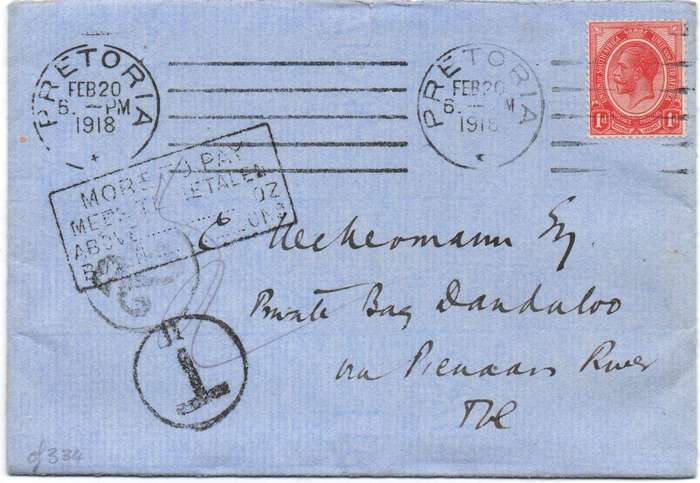 PRETORIA
FEB 20
6. — PM
1918
PRETORIA
FEB 20
6. — M
1918
1D 1D
MORE TO PAY
MEER TE BETALEN
ABOVE OZ
ONS
T
Esq
Private Bag Dandaloo
via Pienaars River
Tvl